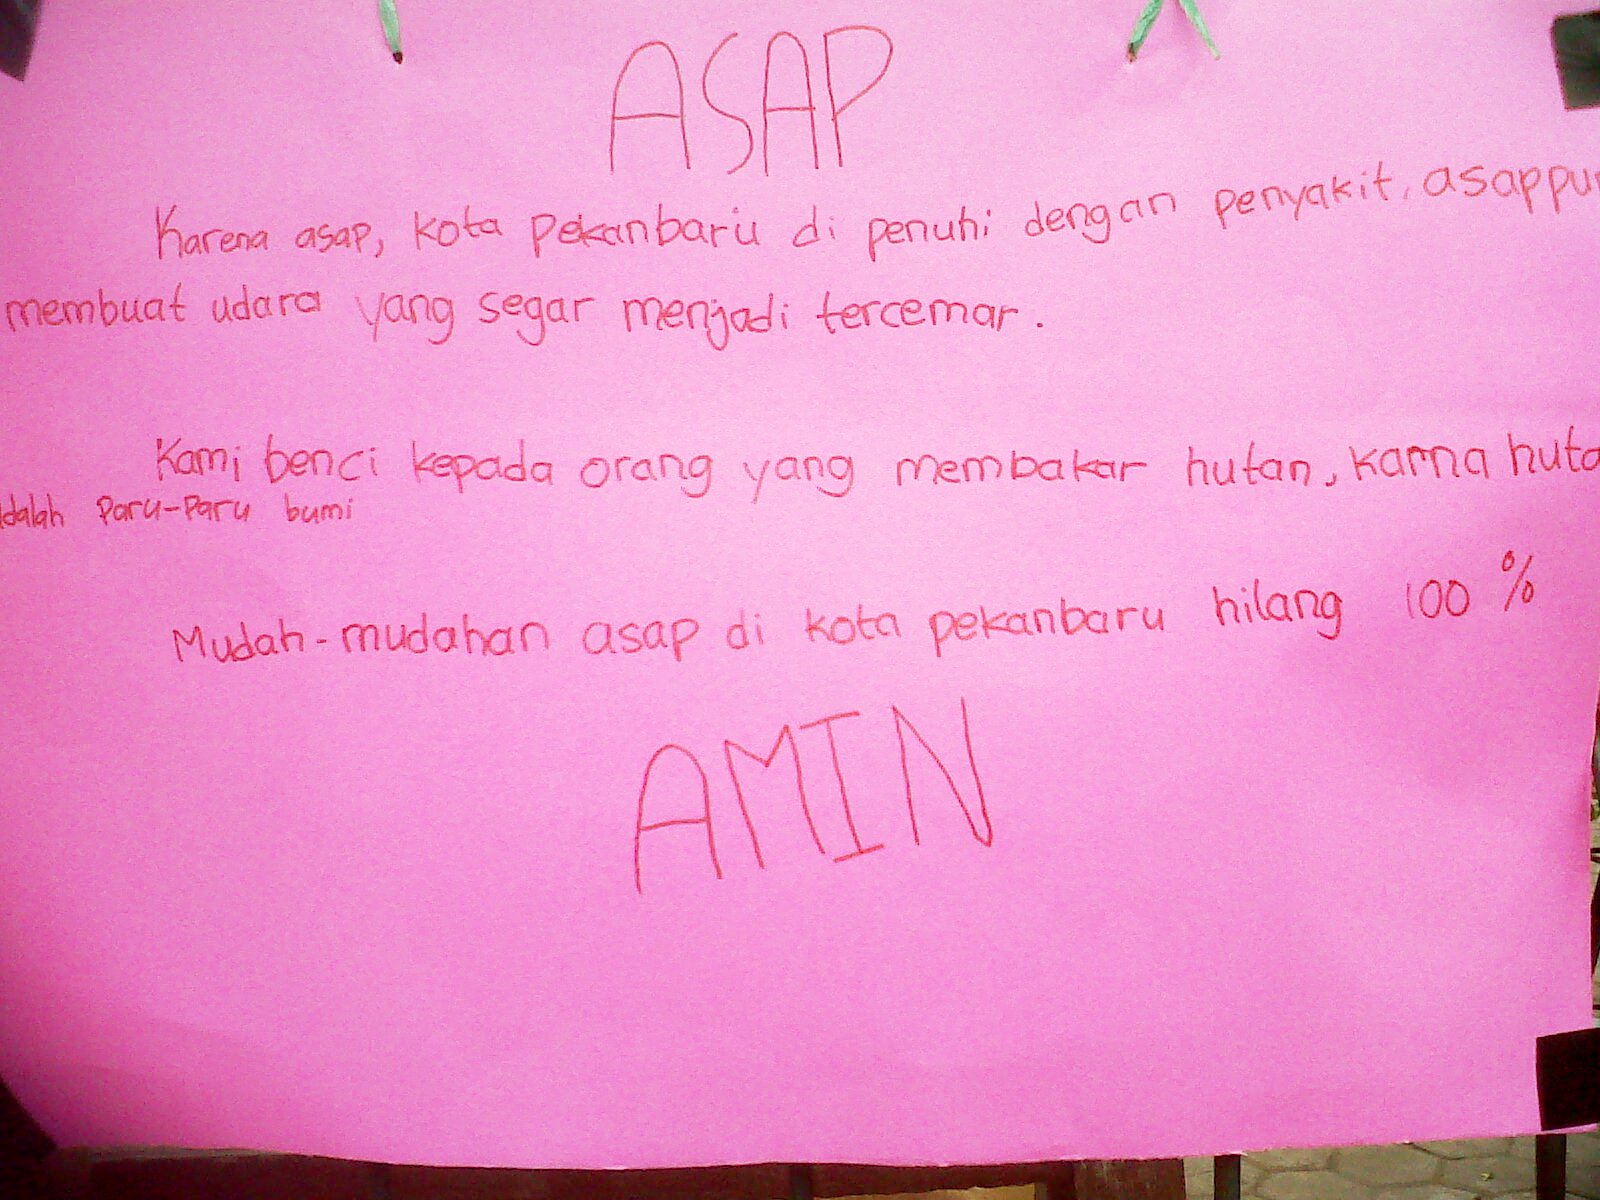 ASAP
Karena asap, kota pekanbaru di penuhi dengan penyakit, asappun
membuat udara yang segar menjadi tercemar.
Kami benci kepada orang yang membakar hutan, karna huta
adalah paru-paru bumi
Mudah-mudahan asap di kota pekanbaru hilang 100 %
AMIN